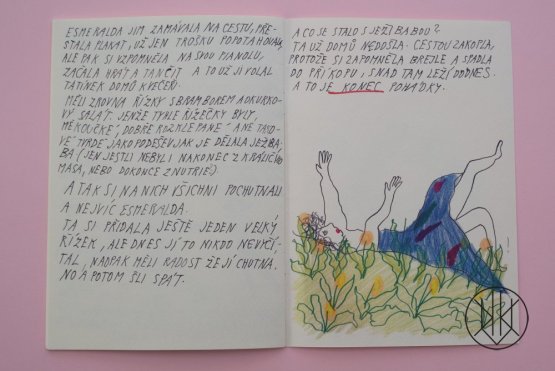 ESMERALDA JIM ZAMÁVALA NA CESTU, PŘE-
STALA PLAKAT, UŽ JEN TROŠKU POPOTAHOVALA,
ALE PAK SI VZPOMNĚLA NA SVOU PIANOLU,
ZAČALA HRÁT A TANČIT A TO UŽ JI VOLAL
TATÍNEK DOMŮ K VEČEŘI.
MĚLI ZROVNA ŘÍZKY S BRAMBOREM A OKURKO-
VÝ SALÁT. JENŽE TYHLE ŘÍZEČKY BYLY,
MĚKOUČKÉ, DOBŘE ROZKLEPANÉ A NE TAKO-
VÉ TVRDÉ JAKO PODEŠEV, JAK JE DĚLALA JEŽIBA-
BA (JEN JESTLI NEBYLI NAKONEC Z KRÁLIČÍHO
MASA, NEBO DOKONCE Z NUTRIE?)
A TAK SI NA NICH VŠICHNI POCHUTNALI
A NEJVÍC ESMERALDA.
TA SI PŘIDALA JEŠTĚ JEDEN VELKÝ
ŘÍZEK, ALE DNES JÍ TO NIKDO NEVYČÍ-
TAL, NAOPAK MĚLI RADOST ŽE JÍ CHUTNÁ.
NO A POTOM ŠLI SPÁT.
A CO SE STALO S JEŽIBABOU?
TA UŽ DOMŮ NEDOŠLA. CESTOU ZAKOPLA,
PROTOŽE SI ZAPOMNĚLA BREJLE A SPADLA
DO PŘÍKOPU, SNAD TAM LEŽÍ DODNES.
A TO JE KONEC POHÁDKY.